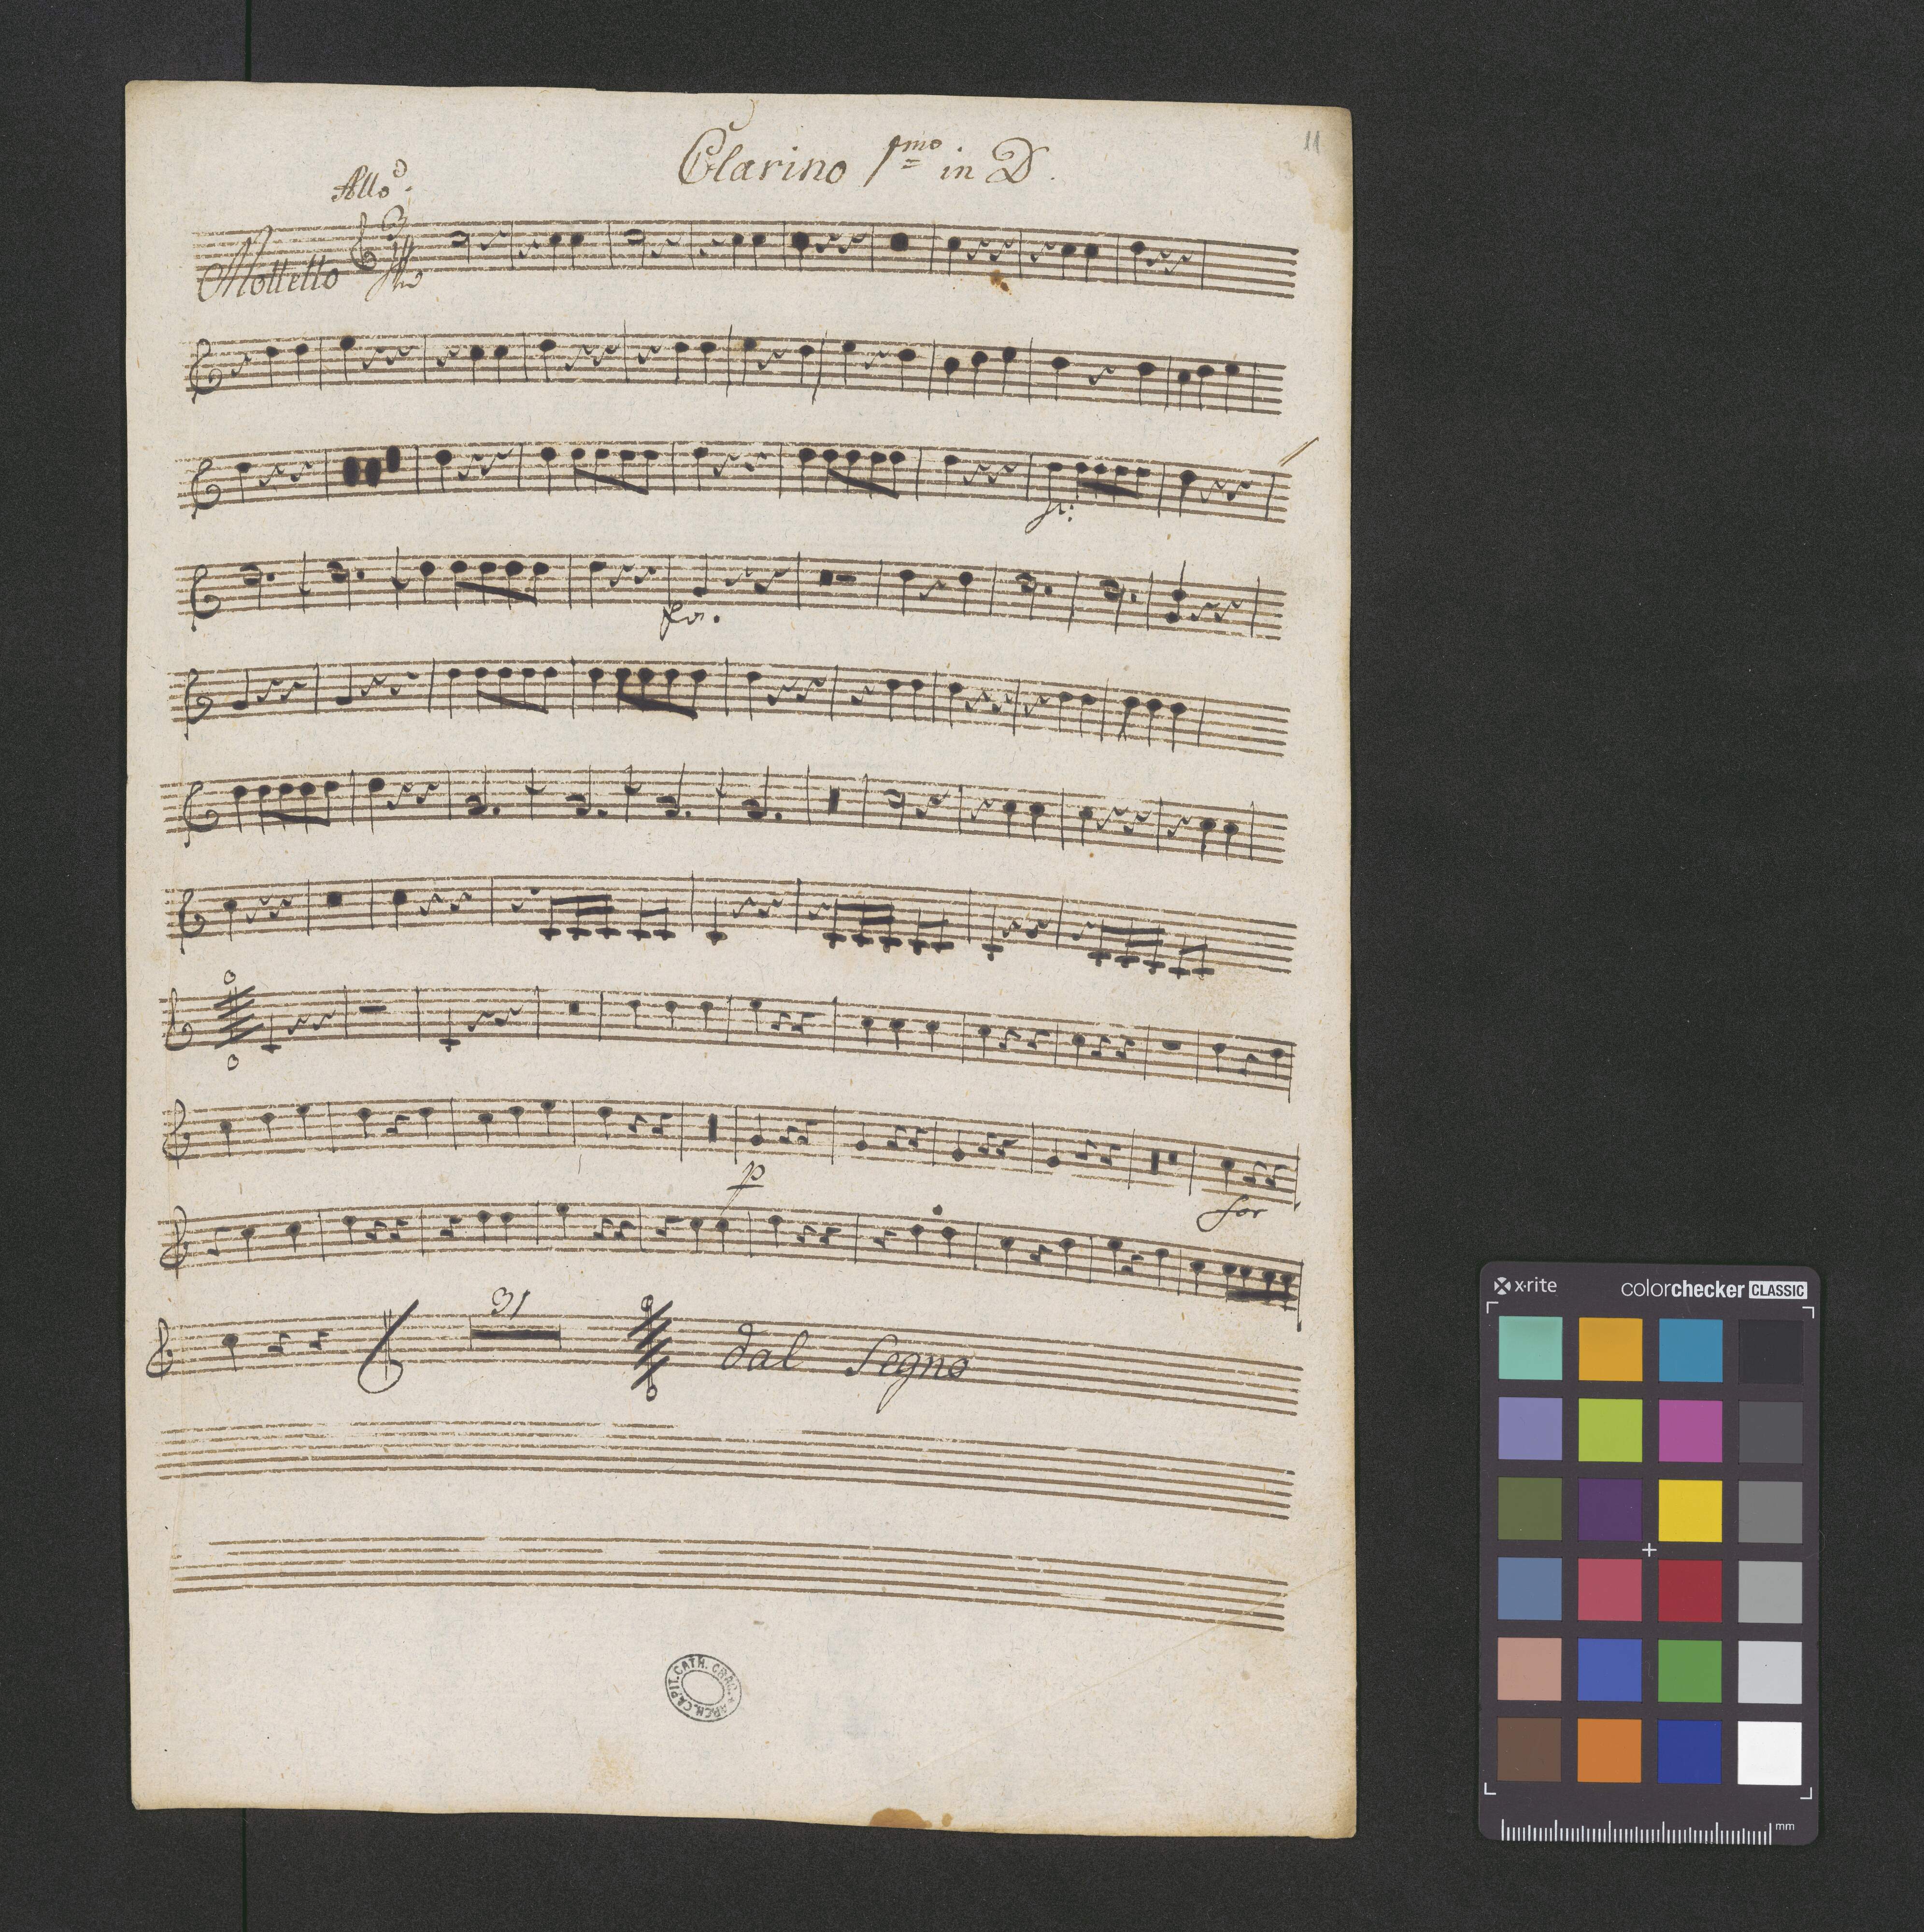 11
13
Clarino 1mo in D.
Allo.
Mottetto
for.
p
for
31
dal Segno
ARCH. CAPIT. CATH. CRAC.
x-rite
colorchecker CLASSIC
mm